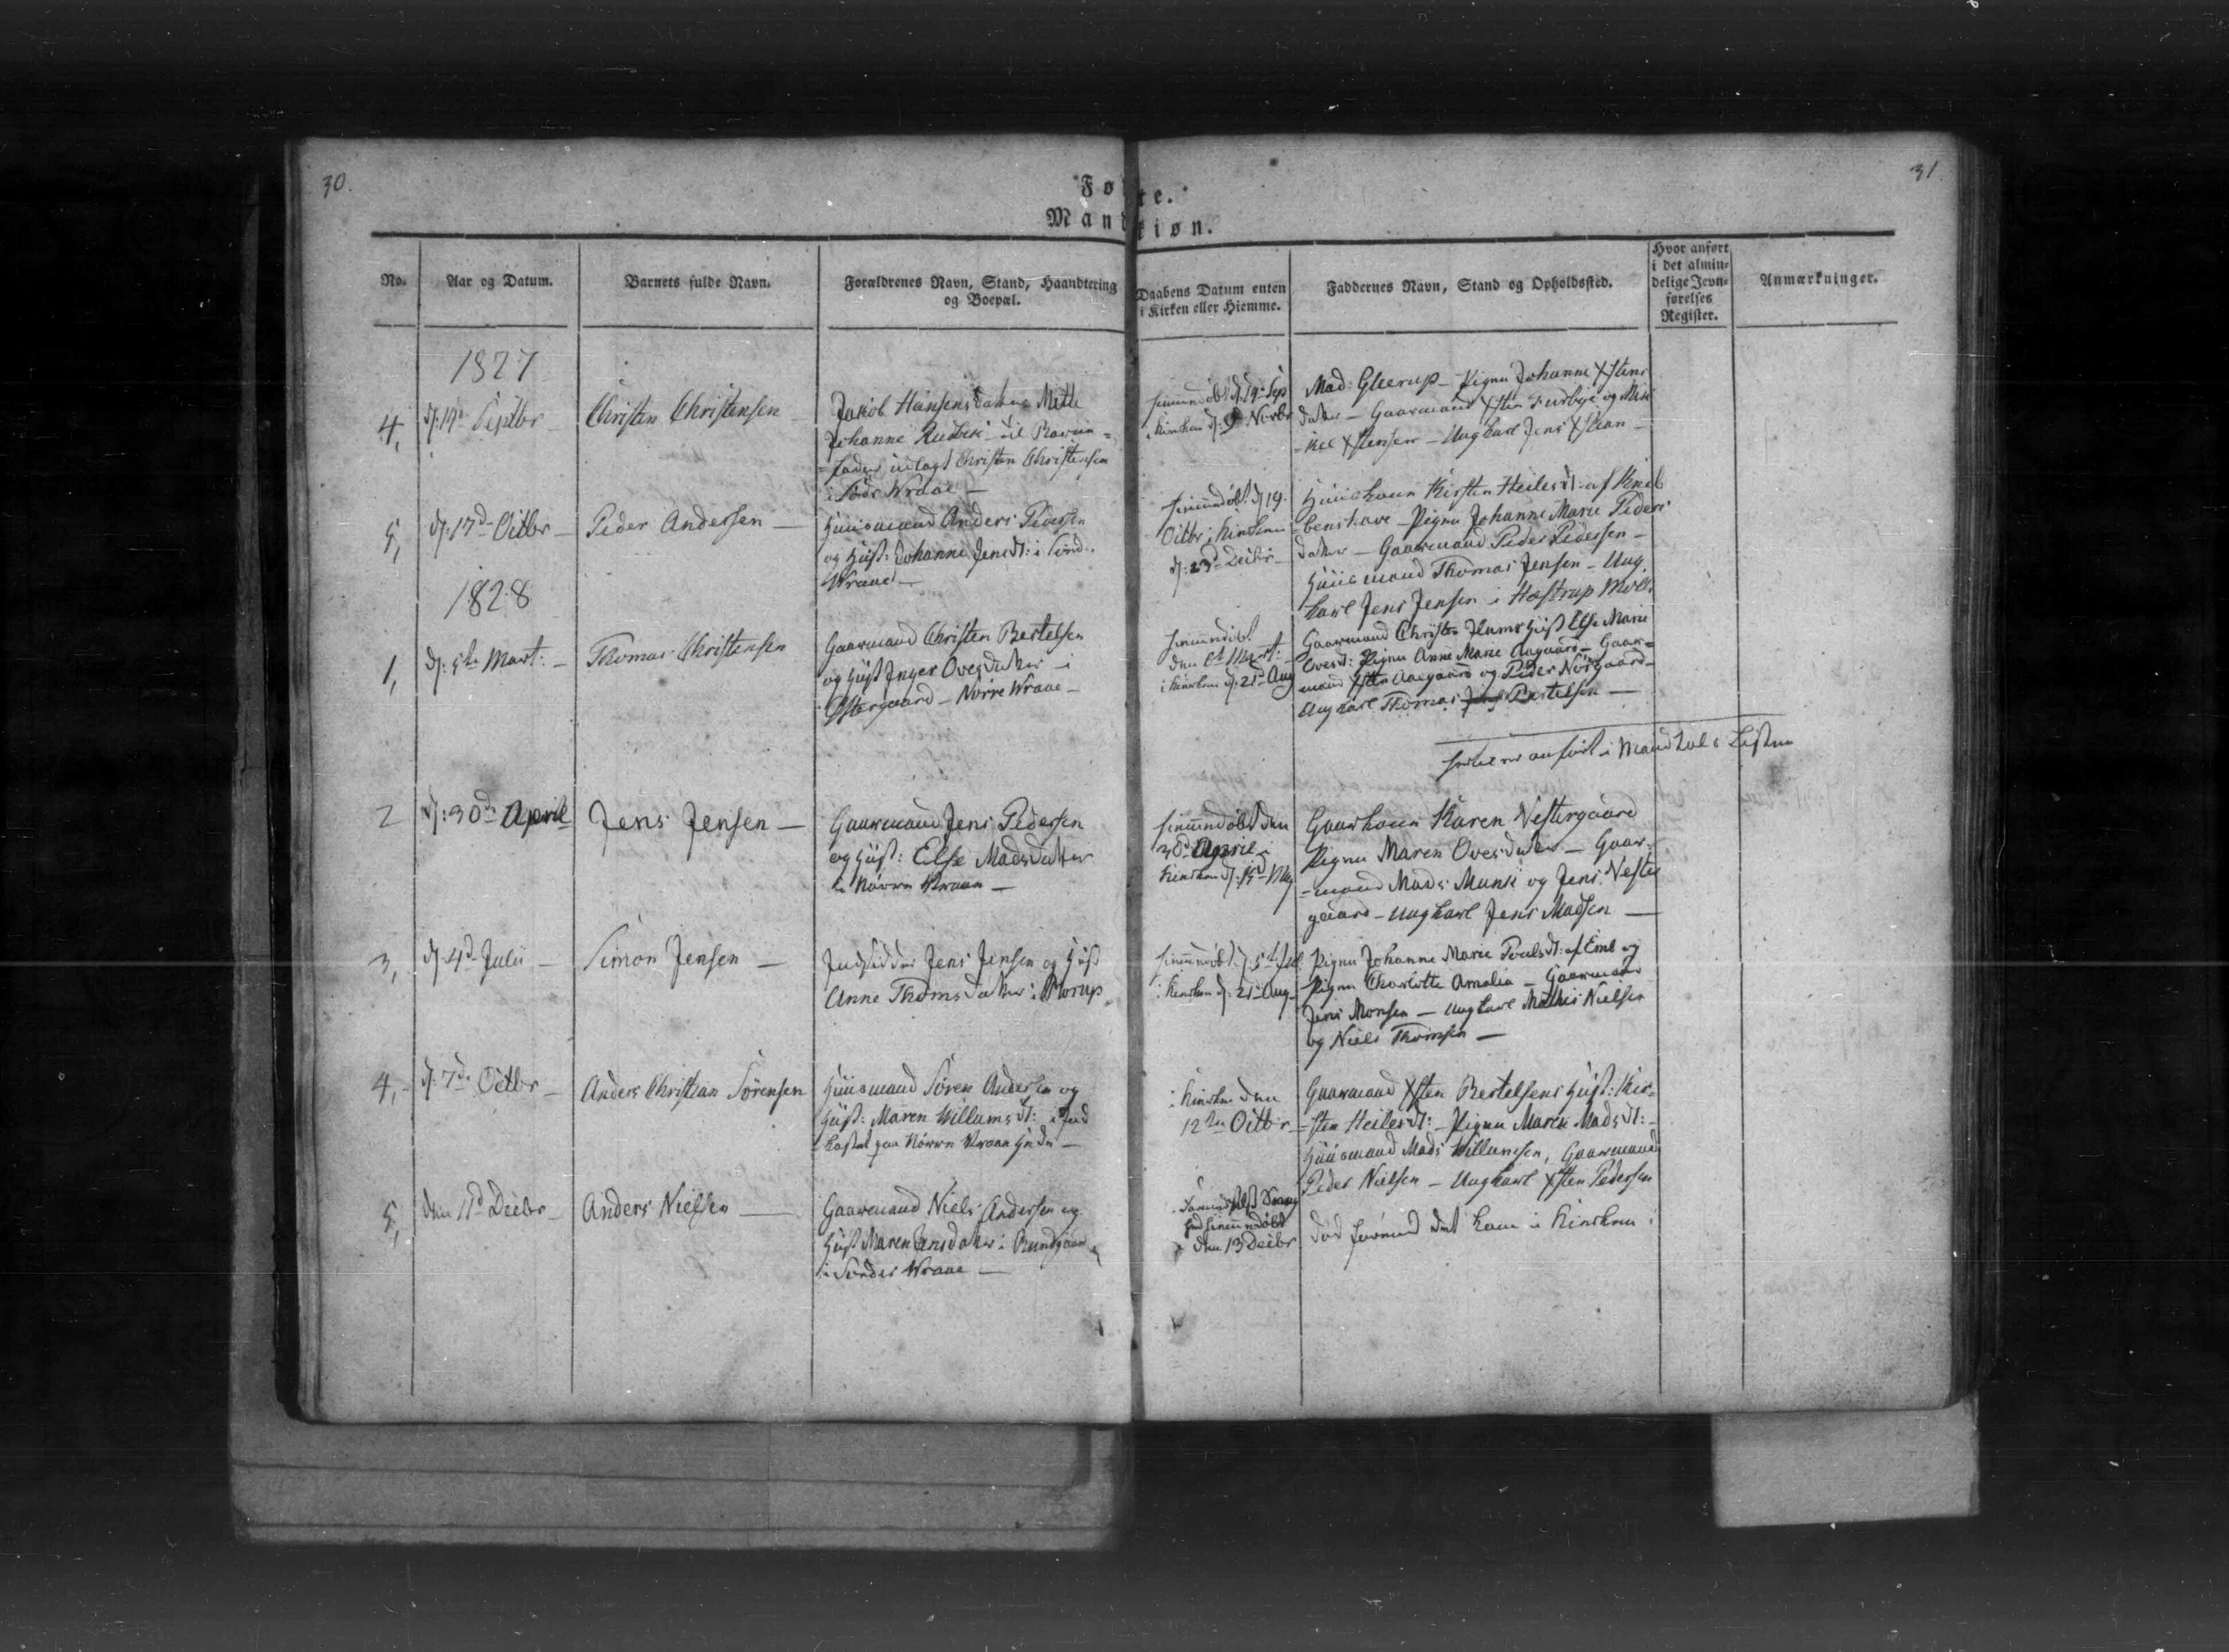 30.
31.
Fødte.
Mandkiøn.
No.
Aar og Datum.
Barnets fulde Navn.
Forældrenes Navn, Stand, Haandtering
og Boepæl.
Daabens Datum enten
i Kirken eller Hiemme.
Faddernes Navn, Stand og Opholdssted.
Hvor anført
i det almin-
delige Jevn-
førelses
Register.
Anmærkninger.
1827
4,
d: 19de Septbr
Christen Christensen
Jakob Hansens datter Mette
Johanne til Barne=
=fader udlagt Christen Christensen
i Sönder Wraae —
hiemmedöbt d 19de Sep
i Kirken d: 9d Novbr
Mad: Gleerup — Pigen Johanne Xstens
datter — Gaarmand Xsten og Mik
kel Xstensen — Ungkarl Jens Xstian —
5,
d: 17d Octbr —
Peder Andersen —
Huusmand Anders Pedersen
og Hust: Johanne Jensdt: i Sönd.
Wraae —
hiemmedöbt d 19.
Octbr i Kirken
d: 23d Decbr —
Huuskonen Kirsten Heilesdt: af Kneb
benshave — Pigen Johanne Marie Peders
datter — Gaarmand Peder Pedersen —
Huusmand Thomas Jensen — Ung
karl Jens Jensen i Hæstrup Mölle
1828
1,
d: 5te Mart: —
Thomas Christensen
Gaarmand Christen Bertelsen
og Hust Inger Ovesdatter — i
Östergaard — Nörre Wraae —
hiemmedöbt
den 6t Mart: —
i Kirken d: 21d Aug
Gaarmand Christen Hust Else Marie
Ovesd: Pigen Anne Marie Aagaard — Gaar=
mand Xsten Aaegaard og Peder Norgaard —
Ungkarl Thomas Bertelsen —
hertil er anfört i Mandtals Listen
2
d: 30d April
Jens Jensen —
Gaarmand Jens Pedersen
og Hust: Else Madsdatter
i Nörre Wraae —
hiemmedöbt den
30d April i
Kirken d: 15d May
Gaarkonen Karen Vestergaard
Pigen Maren Ovesdatter — Gaar=
=mand Mads Munk og Jens Vester
gaard — Ungkarl Jens Madsen —
3,
d: 4d Julii —
Simon Jensen —
Indsidder Jens Jensen og Hust
Anne Thomsdatter i
hiemmedöbt d: 5te Jul
i Kirken d: 21d Aug —
Pigen Johanne Marie Poulsdt: af Emb og
Pigen Charlotte Amalia — Gaarmand
Jens Monsen — Ungkarl Mathis Nielsen
og Niels Thomsen —
4, —
d: 7de Octbr —
Anders Christian Sörensen
Huusmand Sören Andersen og
Hust: Maren Willumsdt: i
paa Nörre Wraae
i Kirken den
12te Octbr —
Gaarmand Xsten Bertelsens Hust: Kir=
=sten Heilesdt: — Pigen Maren Madsdt: —
Huusmand Mads Willumsen, Gaarmand
Peder Nielsen — Ungkarl Xsten Pedersen
5,
den 11d Decbr —
Anders Nielsen —
Gaarmand Niels Andersen og
Hust Maren Jensdatter i
i Sönder Wraae —
hiemmedöbt
den 13 Decbr
död förend det kom i Kirken